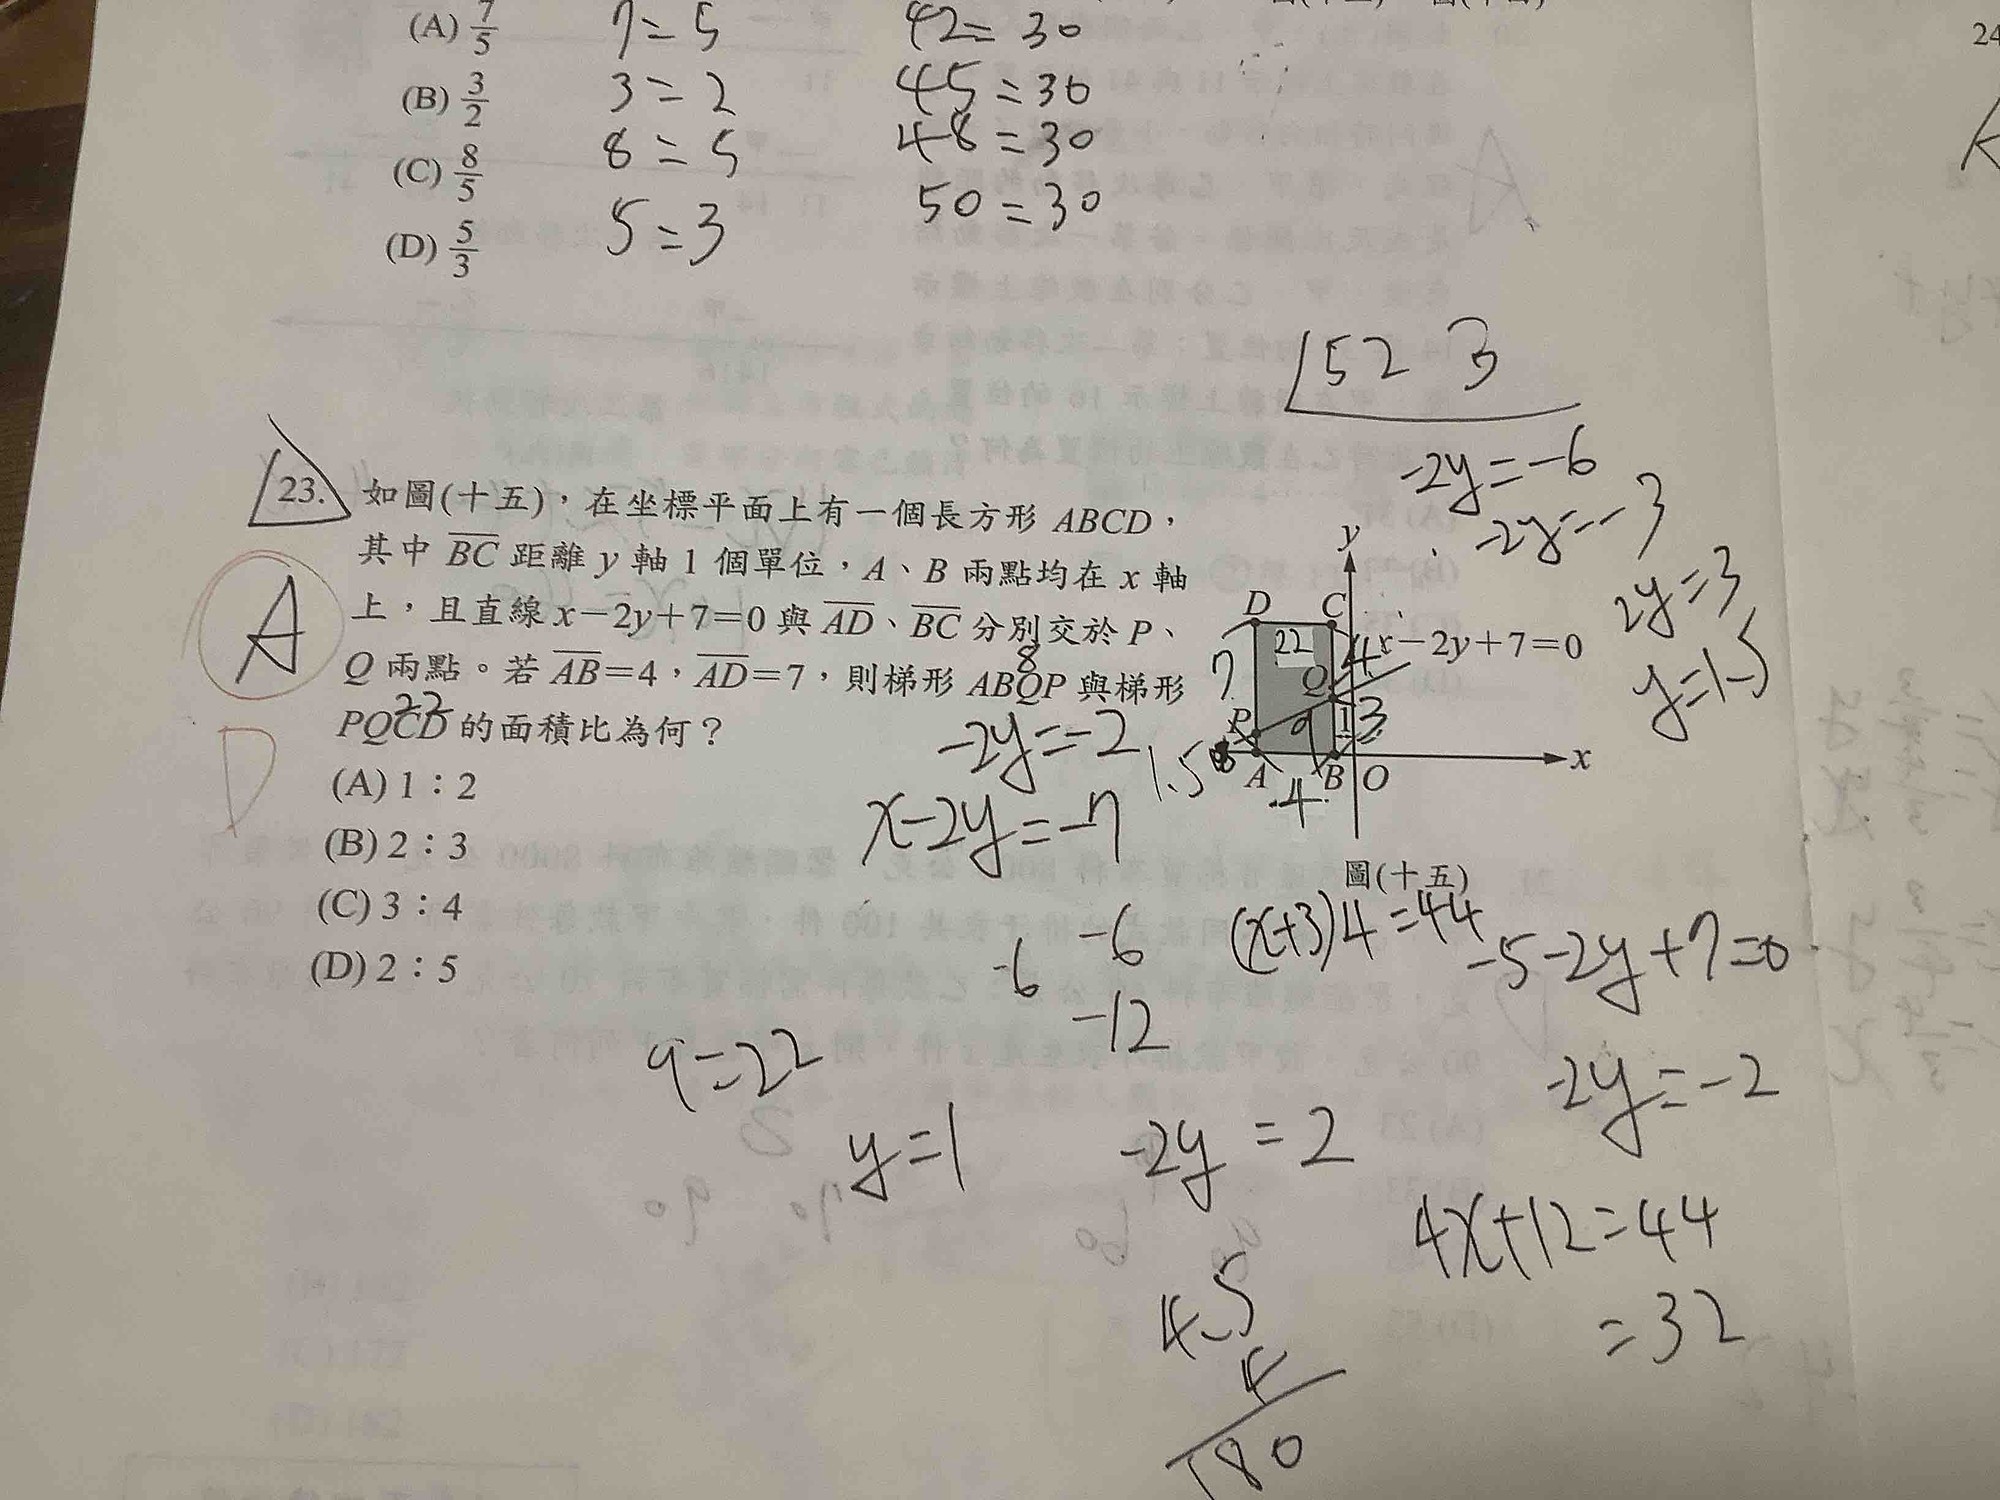 (A) 7/5 7=5 42=30
(B) 3/2 3=2 45=30
(C) 8/5 8=5 48=30
(D) 5/3 5=3 50=30
24
152 3
-2y=-6
-2y=-3
2y=3
y=1.5
23. 如圖(十五)，在坐標平面上有一個長方形 ABCD，
其中 BC 距離 y 軸 1 個單位，A、B 兩點均在 x 軸
上，且直線 x－2y＋7＝0 與 AD、BC 分別交於 P、
Q 兩點。若 AB＝4，AD＝7，則梯形 ABQP 與梯形
PQCD 的面積比為何？
A
D
8
22
(A) 1：2
(B) 2：3
(C) 3：4
(D) 2：5
y
D C
22 4 x－2y＋7＝0
7 Q
P 9 1 3
1.5 A B O x
4
圖(十五)
-2y=-2
x-2y=-7
-6 -6
-12
(x+3)4=44
-5-2y+7=0
9=22
-2y=-2
y=1
-2y=2
4x+12=44
=32
4.5
4
180